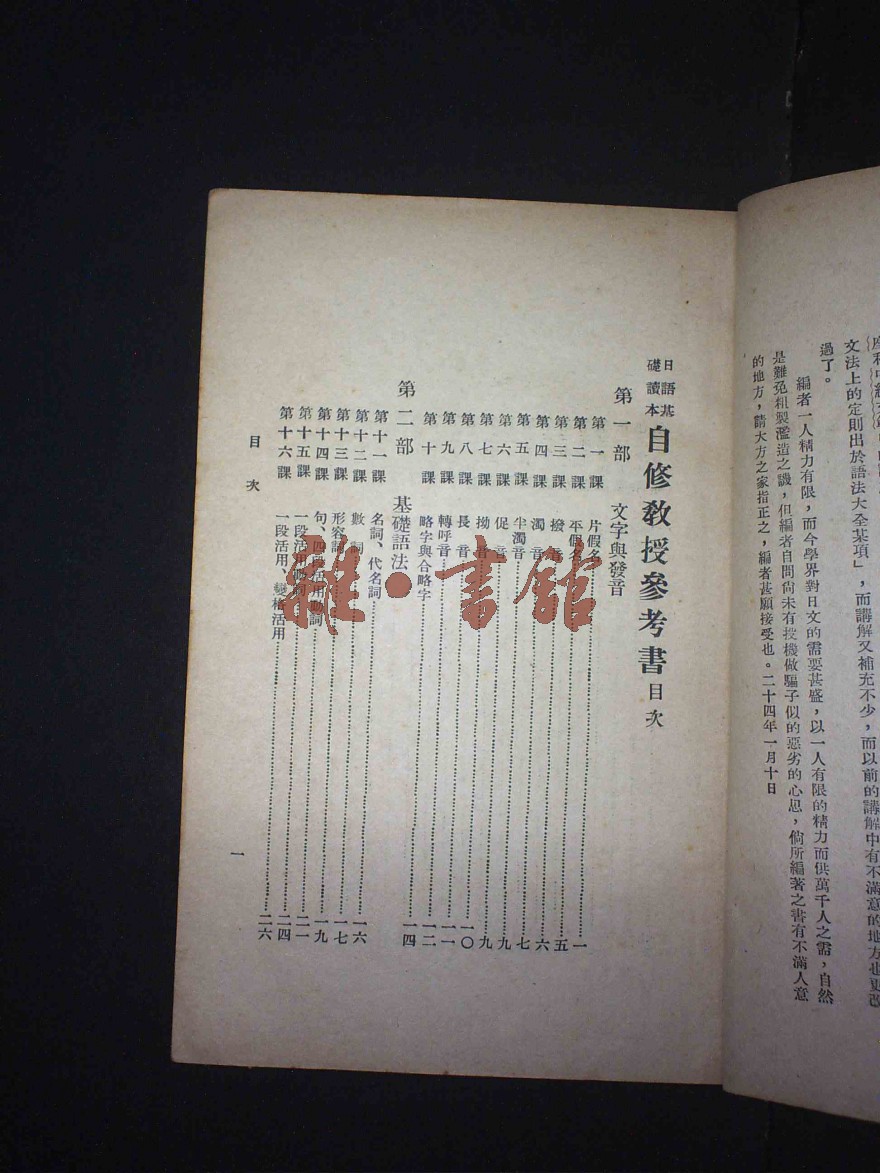 文法上的定則出於語法大全某項」,而講解又補充不少,而以前的講解中有不滿意的地方也更改
過了。
編者一人精力有限,而今學界對日文的需要甚盛,以一人有限的精力而供萬千人之需,自然
是難免粗製濫造之譏,但編者自問尙未有投機做騙子似的惡劣的心思,倘所編著之書有不滿人意
的地方,請大方之家指正之,編者甚願接受也。二十四年一月十日
日語基礎讀本 自修教授參考書目次
第一部 文字與發音
第一課 片假名……一
第二課 平假名……五
第三課 撥音……六
第四課 濁音……七
第五課 半濁音……九
第六課 促音……九
第七課 拗音……一〇
第八課 長音……一一
第九課 轉呼音……一二
第十課 略字與合略字……一四
第二部 基礎語法
第十一課 名詞、代名詞……一六
第十二課 數詞……一七
第十三課 形容詞……一九
第十四課 句、四段活用動詞……二一
第十五課 一段活用動詞……二四
第十六課 一段活用、變格活用……二六
目次
一
雜·書館